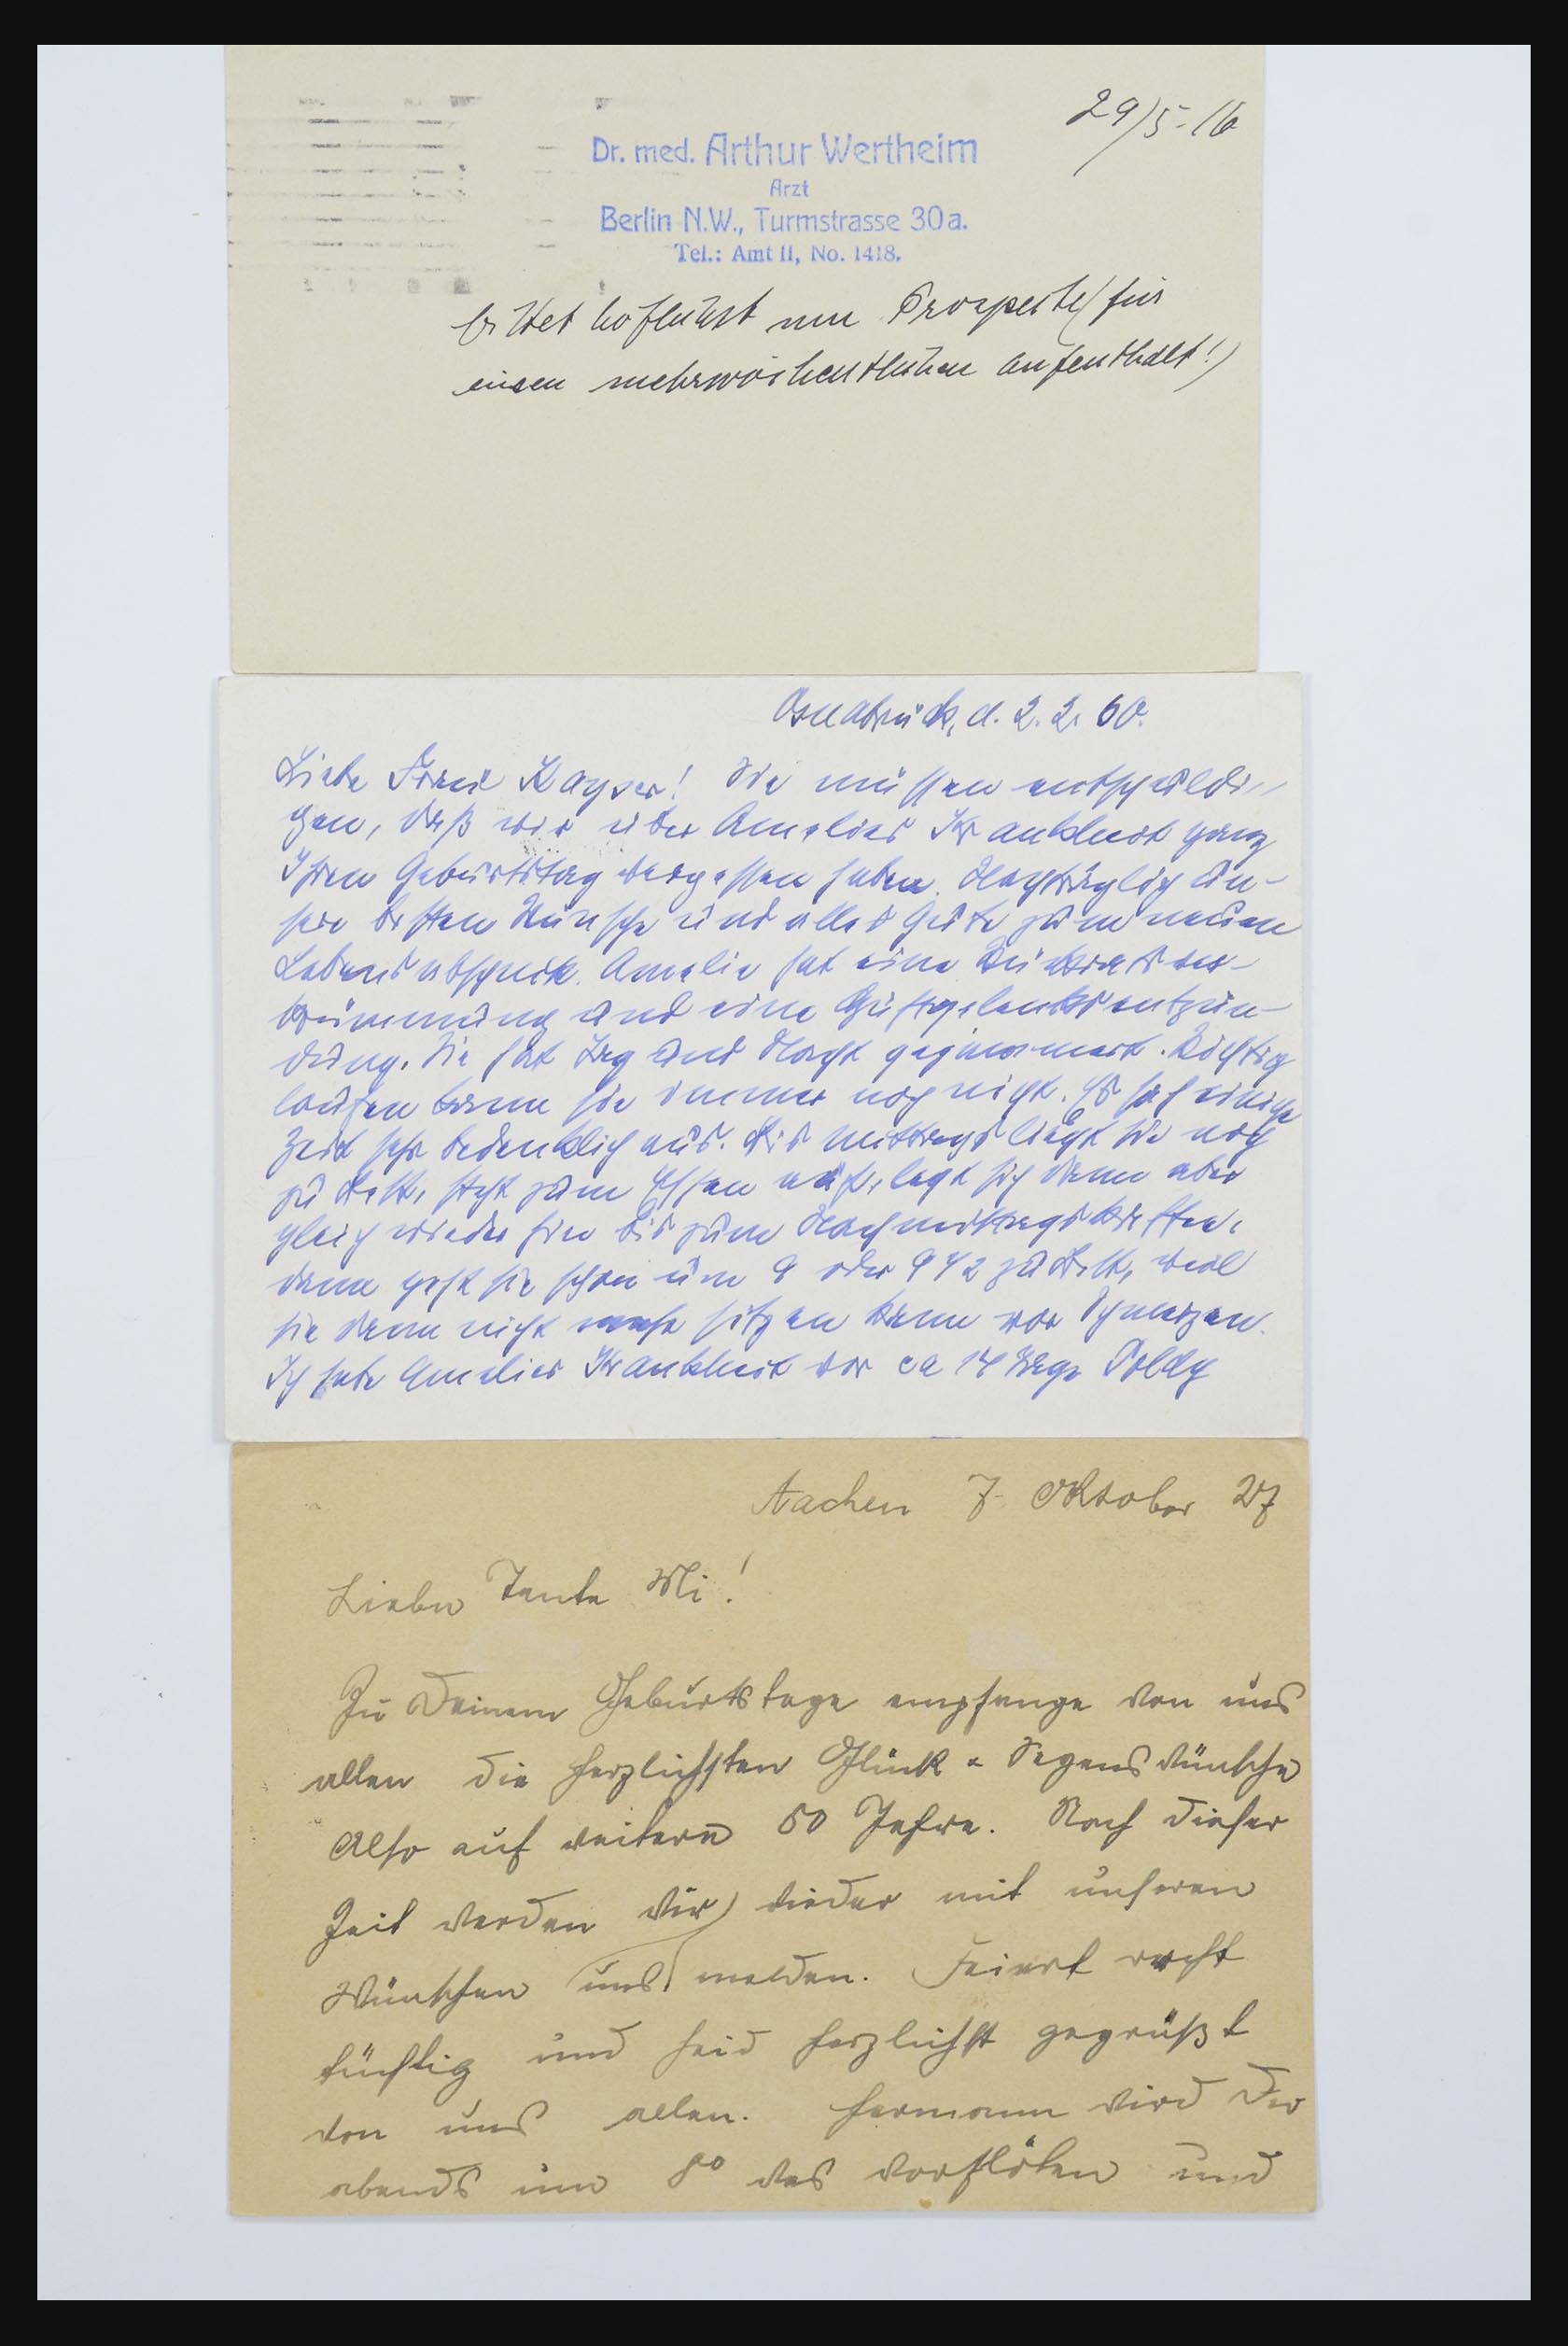 29/5.16
Dr. med. Arthur Wertheim
Arzt
Berlin N.W., Turmstrasse 30a.
Tel.: Amt II, No. 1418.
bittet höflichst um Prospekte (für
einen mehrwöchentlichen Aufenthalt!)
Osnabrück, d. 2. 2. 60.
Liebe Frau Kayser! Sie müssen entschuldi-
gen, daß wir über Amelies Krankheit ganz
Ihren Geburtstag vergessen haben. Nachträglich un-
sere besten Wünsche und alles Gute zum neuen
Lebensabschnitt. Amelie hat eine Rückratsver-
krümmung und eine Hüftgelenksentzün-
dung. Sie hat Tag und Nacht gejammert. Richtig
laufen kann sie immer noch nicht. Es sah einige
Zeit sehr bedenklich aus. Bis mittags liegt sie noch
zu Bett, steht zum Essen auf, legt sich dann aber
gleich wieder hin bis zum Nachmittagskaffee,
dann geht sie schon um 9 oder 9 1/2 zu Bett, weil
sie dann nicht mehr sitzen kann vor Schmerzen.
Ich habe Amelies Krankheit vor ca 14 Tage Poldy
Aachen 7. Oktober 27
Liebe Tante Mi!
Zu Deinem Geburtstage empfange von uns
allen die herzlichsten Glück & Segenswünsche
Also auf weitere 50 Jahre. Nach dieser
Zeit werden wir wieder mit unseren
Wünschen uns melden. Feiert recht
tüchtig und seid herzlichst gegrüßt
von uns allen. Hermann wird Dir
abends um 8⁰ was vorflöten und